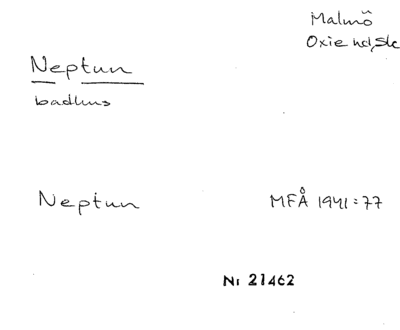 Malmö
Oxie hd, Sk
Neptun
badhus
Neptun
MFÅ 1941:77
Nr 21462